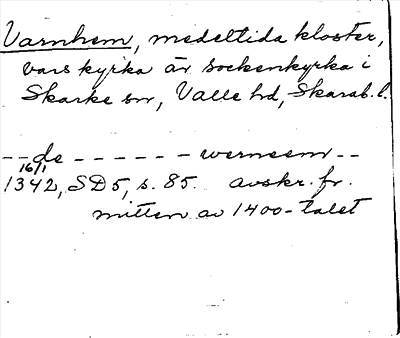 Varnhem, medeltida kloster,
vars kyrka är sockenkyrka i
Skarke sn, Valle hd, Skarab. l.
-- de ------ werneem --
16/1
1342, SD5, s. 85. avskr. fr.
mitten av 1400-talet